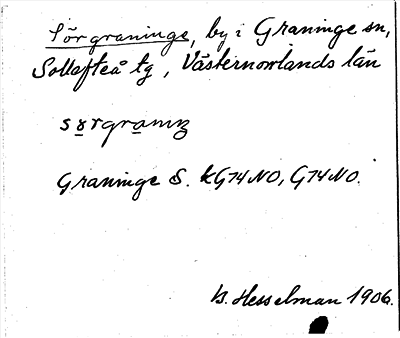 Sörgraninge, by i Graninge sn,
Sollefteå tg, Västernorrlands län
Graninge S. kG74NO, G74NO.
B. Hesselman 1906.